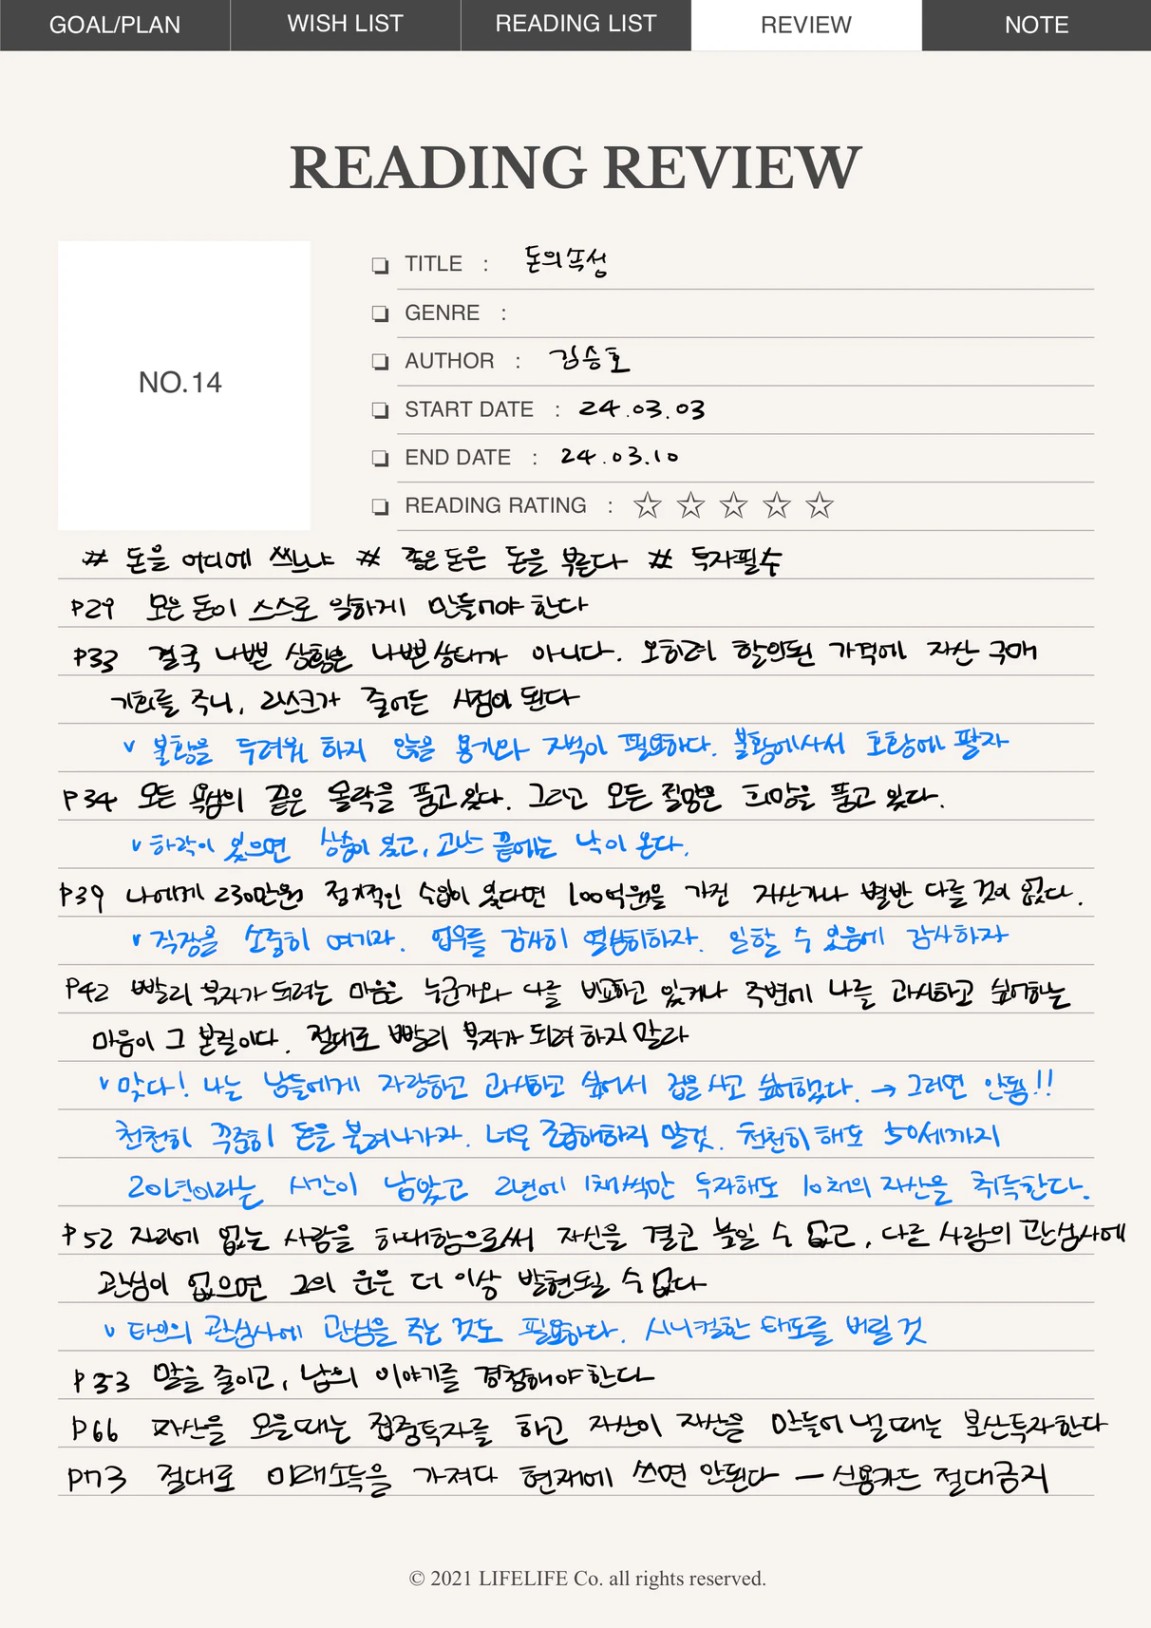 GOAL/PLAN WISH LIST READING LIST REVIEW NOTE
READING REVIEW
NO.14
❏ TITLE : 돈의속성
❏ GENRE :
❏ AUTHOR : 김승호
❏ START DATE : 24.03.03
❏ END DATE : 24.03.10
❏ READING RATING : ☆ ☆ ☆ ☆ ☆
# 돈을 어디에 쓰느냐 # 좋은돈은 돈을 부른다 # 투자필수
P29 모은 돈이 스스로 일하게 만들어야 한다
P33 결국 나쁜 상황은 나쁜상태가 아니다. 오히려 할인된 가격에 자산 구매
기회를 주니, 리스크가 줄어든 시점이 된다
v 불황을 두려워 하지 않을 용기와 지벽이 필요하다. 불황에사서 호황에 팔자
P34 모든 욕심의 끝은 몰락을 품고있다. 그리고 모든 절망은 희망을 품고 있다.
v 하락이 있으면 상승이 있고, 고난 끝에는 낙이 온다.
P39 나에게 230만원 정기적인 수입이 있다면 100억원을 가진 자산가나 별반 다를 것이 없다.
v 직장을 소중히 여기자. 업무를 감사히 열심히하자. 일할 수 있음에 감사하자
P42 빨리 부자가 되려는 마음은 누군가와 나를 비교하고 있거나 주변에 나를 과시하고 싶어하는
마음이 그 본질이다. 절대로 빨리 부자가 되려 하지 말라
v 맞다! 나는 남들에게 자랑하고 과시하고 싶어서 집을 사고 싶어했다. → 그러면 안됨!!
천천히 꾸준히 돈을 불려나가자. 너무 조급해하지 말것. 천천히해도 50세까지
20년이라는 시간이 남았고 2년에 1채씩만 투자해도 10채의 자산을 취득한다.
P52 자리에 없는 사람을 하대함으로써 자신을 결코 높일 수 없고, 다른 사람의 관심사에
관심이 없으면 그의 운은 더 이상 발현될 수 없다
v 타인의 관심사에 관심을 주는 것도 필요하다. 시니컬한 태도를 버릴 것
P53 말을 줄이고, 남의 이야기를 경청해야한다
P66 자산을 모을때는 집중투자를 하고 자산이 자산을 만들어 낼때는 분산투자한다
P73 절대로 미래소득을 가져다 현재에 쓰면 안된다 — 신용카드 절대금지
© 2021 LIFELIFE Co. all rights reserved.